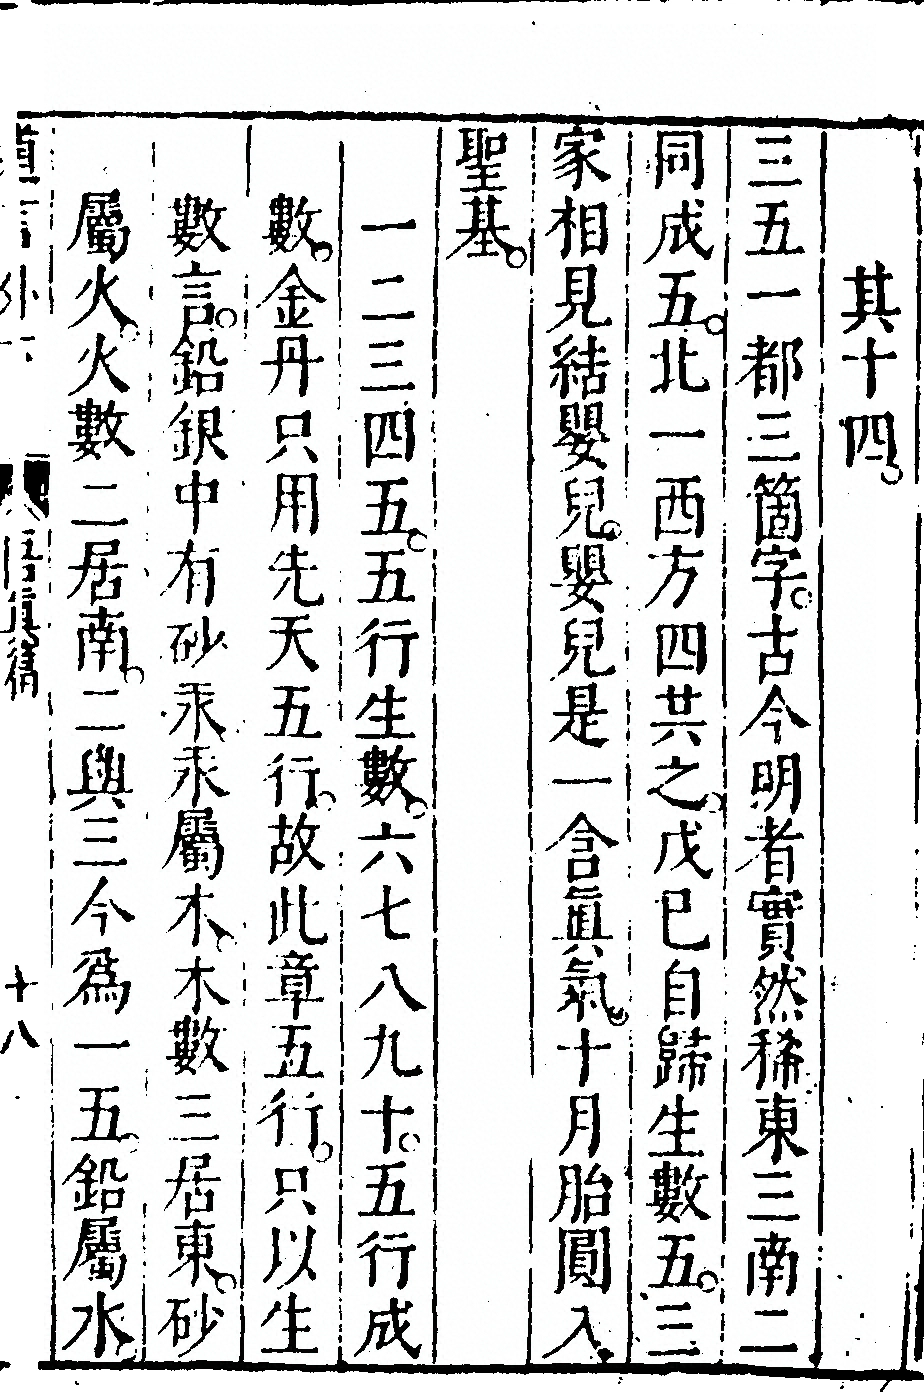 其十四。
三五一都三箇字。古今明者實然稀東三南二
同成五。北一西方四共之。戊巳自歸生數五。三
家相見結嬰兒。嬰兒是一含眞氣。十月胎圓入
聖基。
一二三四五。五行生數。六七八九十。五行成
數。金丹只用先天五行。故此章五行。只以生
數言。鉛銀中有砂汞汞屬木。木數三居東。砂
屬火。火數二居南。二與三今爲一五。鉛屬水
道言外
悟眞篇
十八